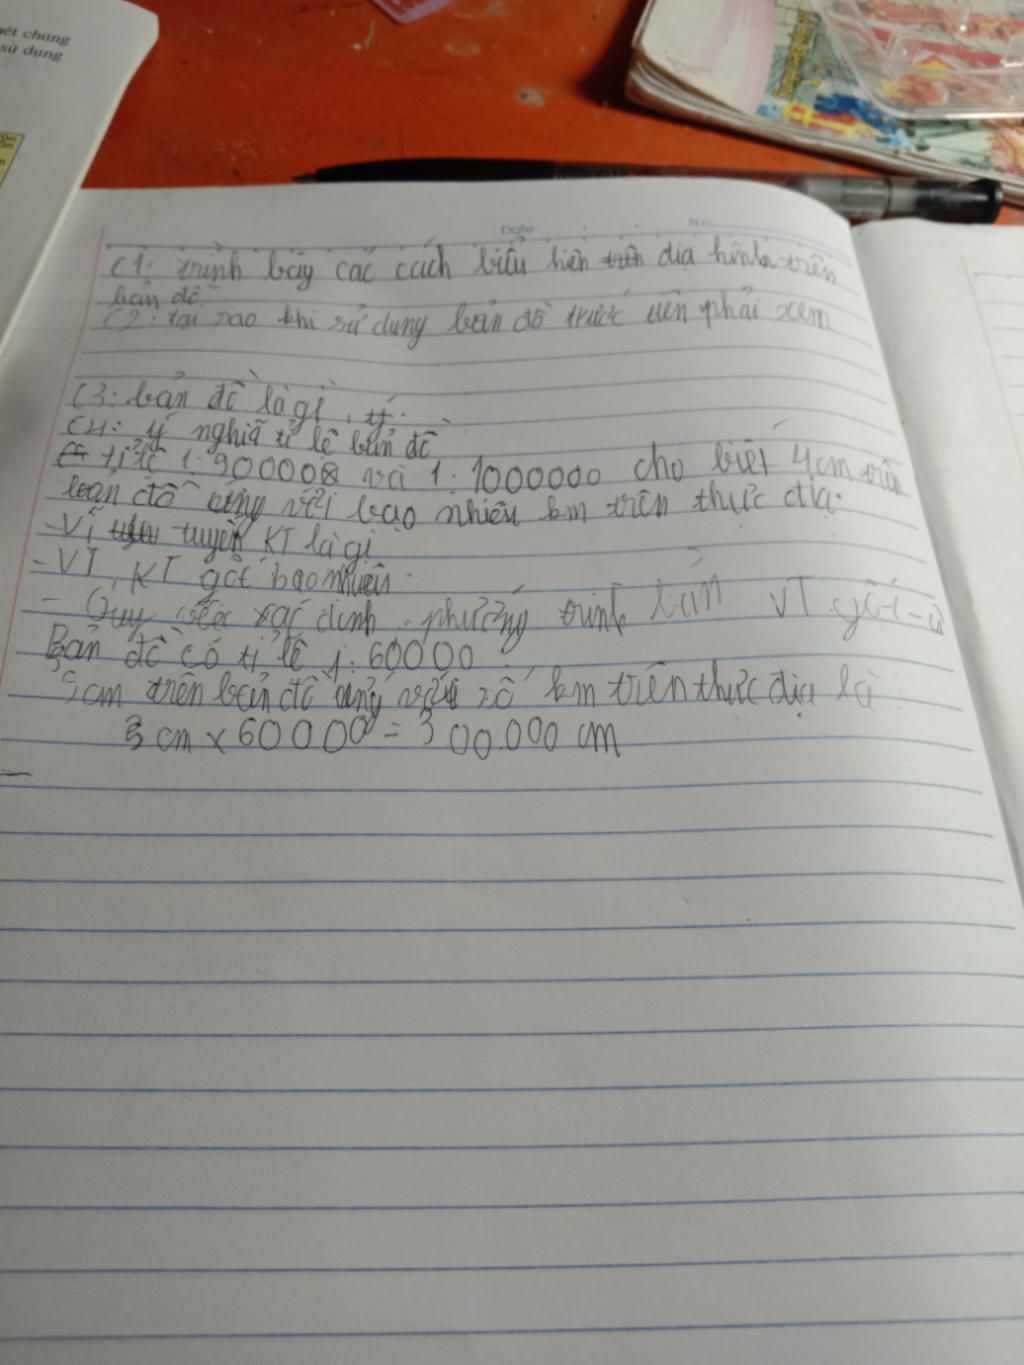 ết chúng
sử dụng
Date
No
C1: trình bày các cách biểu hiện trên địa hình trên
bản đồ
C2: tại sao khi sử dụng bản đồ trước tiên phải xem
C3: bản đồ là gì, ý
C4: ý nghĩa tỉ lệ bản đồ
tỉ lệ 1:900000 và 1:1000000 cho biết 4cm trên
bản đồ ứng với bao nhiêu km trên thực địa.
- Vĩ tuyến KT là gì
- VT, KT gốc bao nhiêu
- Quy xác định phương trình bán VT gốc
Bản đồ có tỉ lệ 1:60000
5cm trên bản đồ ứng với số km trên thực địa là:
5 cm x 60000 = 300.000 cm